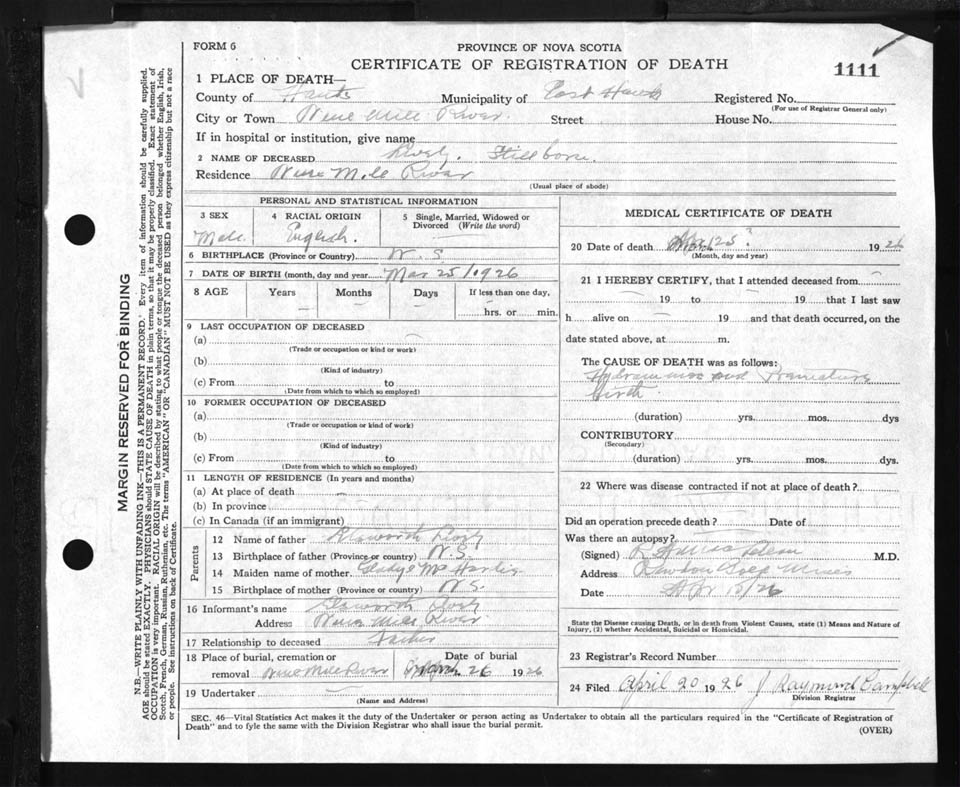 FORM 6
PROVINCE OF NOVA SCOTIA
CERTIFICATE OF REGISTRATION OF DEATH
1111
1 PLACE OF DEATH—
County of Hants Municipality of East Hants Registered No.
(For use of Registrar General only)
City or Town Nine Mile River Street House No.
If in hospital or institution, give name
2 NAME OF DECEASED Stillborn.
Residence Nine Mile River
(Usual place of abode)
PERSONAL AND STATISTICAL INFORMATION
3 SEX 4 RACIAL ORIGIN 5 Single, Married, Widowed or Divorced (Write the word)
Male. English.
6 BIRTHPLACE (Province or Country) N. S.
7 DATE OF BIRTH (month, day and year) Mar 25/1926
8 AGE Years Months Days If less than one day,
hrs. or min.
9 LAST OCCUPATION OF DECEASED
(a)
(Trade or occupation or kind or work)
(b)
(Kind of industry)
(c) From to
(Date from which to which so employed)
10 FORMER OCCUPATION OF DECEASED
(a)
(Trade or occupation or kind of work)
(b)
(Kind of industry)
(c) From to
(Date from which to which so employed)
11 LENGTH OF RESIDENCE (In years and months)
(a) At place of death
(b) In province
(c) In Canada (if an immigrant)
Parents
12 Name of father
13 Birthplace of father (Province or country) N.S.
14 Maiden name of mother Gladys
15 Birthplace of mother (Province or country) N.S.
16 Informant's name
Address Nine Mile River
17 Relationship to deceased Father
18 Place of burial, cremation or removal Nine Mile River Date of burial 26 1926
19 Undertaker
(Name and Address)
MEDICAL CERTIFICATE OF DEATH
20 Date of death 25? 1926
(Month, day and year)
21 I HEREBY CERTIFY, that I attended deceased from
19 to 19 that I last saw
h alive on 19 and that death occurred, on the
date stated above, at m.
The CAUSE OF DEATH was as follows:
Hydramnios and Premature
Birth.
(duration) yrs. mos. dys
CONTRIBUTORY
(Secondary)
(duration) yrs. mos. dys.
22 Where was disease contracted if not at place of death?
Did an operation precede death? Date of
Was there an autopsy?
(Signed) M.D.
Address Rawdon Gold Mines
Date Apr 15/26
State the Disease causing Death, or in death from Violent Causes, state (1) Means and Nature of
Injury, (2) whether Accidental, Suicidal or Homicidal.
23 Registrar's Record Number
24 Filed April 20 1926 J Raymond Campbell
Division Registrar
SEC. 46—Vital Statistics Act makes it the duty of the Undertaker or person acting as Undertaker to obtain all the particulars required in the "Certificate of Registration of
Death" and to fyle the same with the Division Registrar who shall issue the burial permit.
(OVER)
MARGIN RESERVED FOR BINDING
N.B.—WRITE PLAINLY WITH UNFADING INK—THIS IS A PERMANENT RECORD. Every item of information should be carefully supplied.
AGE should be stated EXACTLY. PHYSICIANS should STATE CAUSE OF DEATH in plain terms, so that it may be properly classified. Exact statement of
OCCUPATION is very important. RACIAL ORIGIN will be described by stating to what people or tongue the deceased person belonged whether English, Irish,
Scotch, French, German, Russian, Ruthenian, etc. The terms "AMERICAN" OR "CANADIAN" MUST NOT BE USED as they express citizenship but not a race
or people. See instructions on back of Certificate.